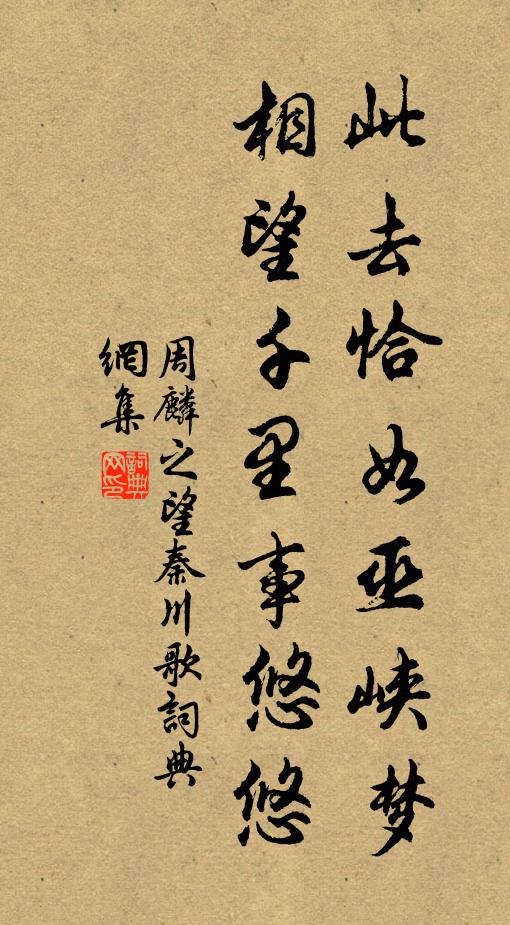 此去恰如巫峡梦
相望千里事悠悠
周麟之望秦川歌詞典
網集
詞典网印